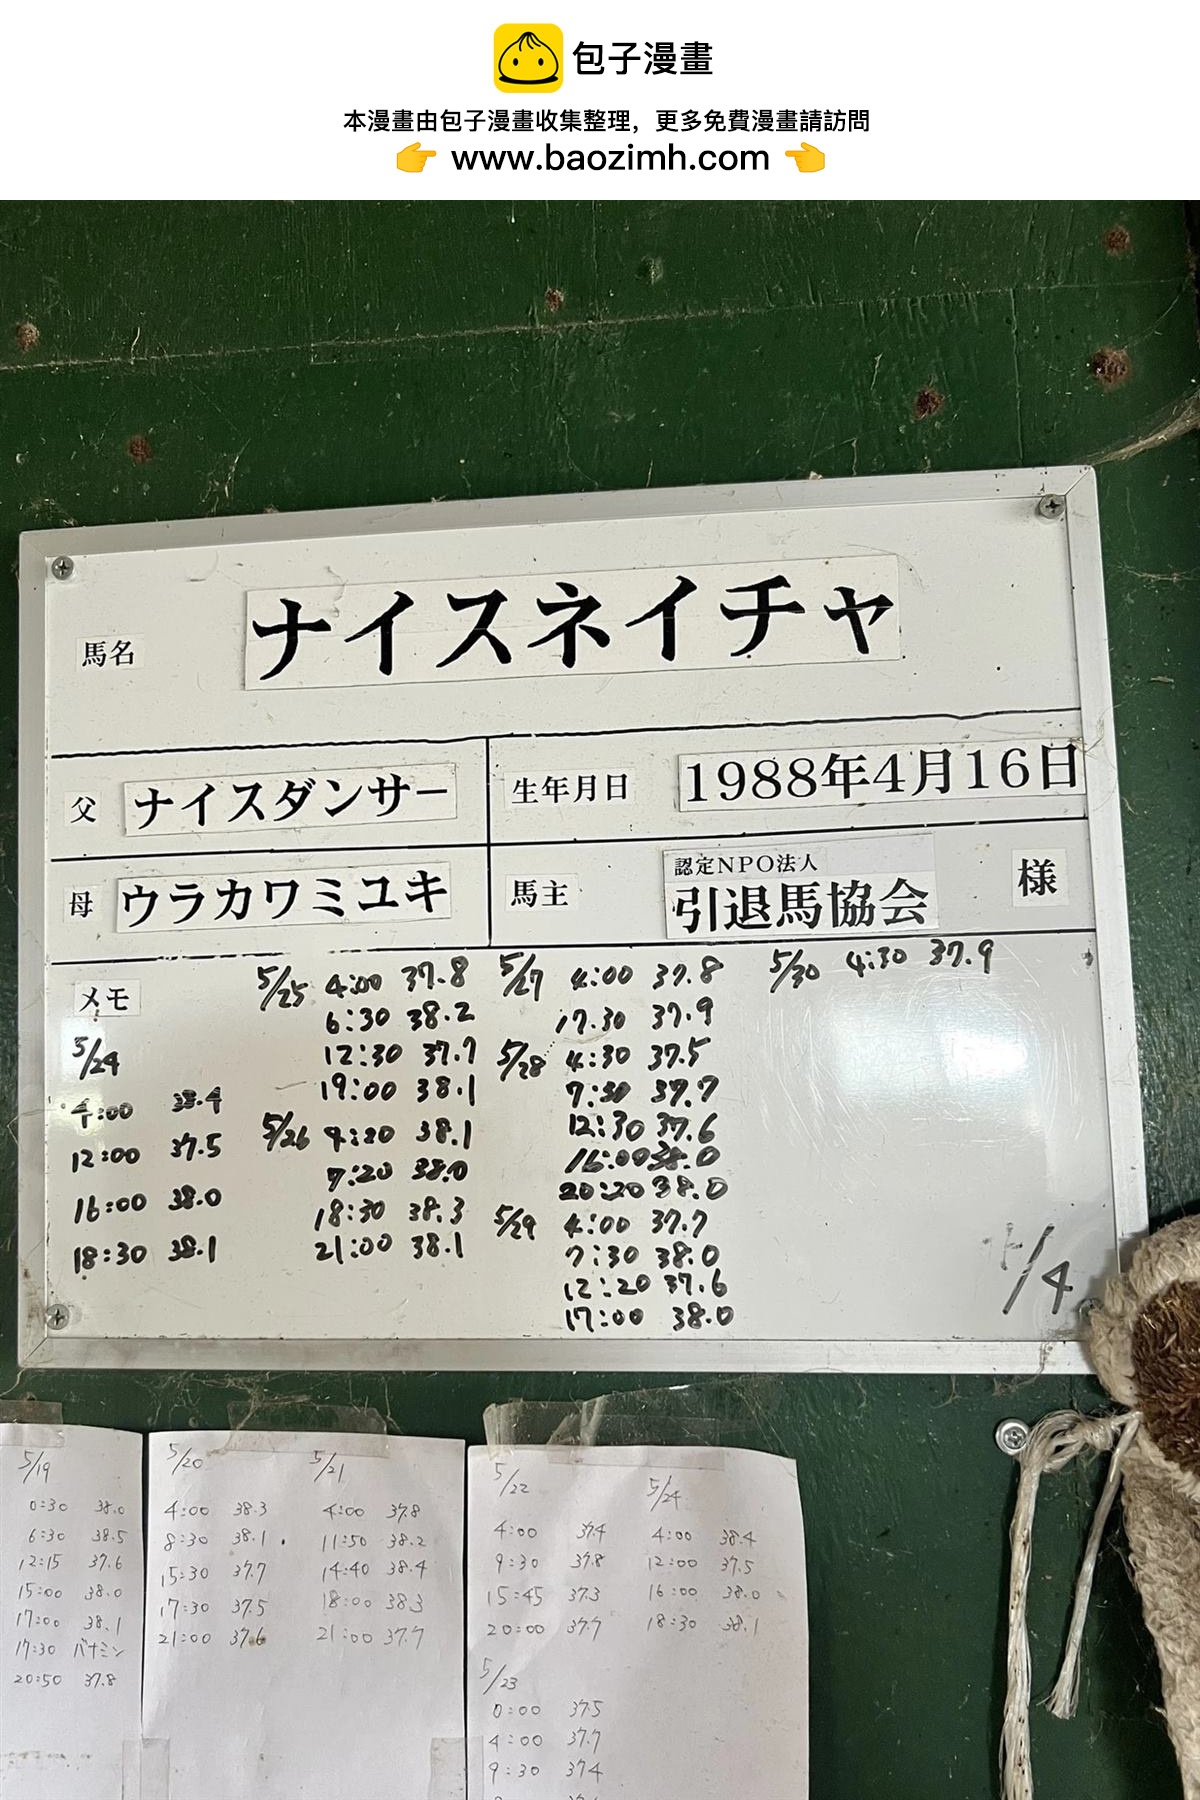 包子漫畫
本漫畫由包子漫畫收集整理，更多免費漫畫請訪問
👉 www.baozimh.com 👈
馬名 ナイスネイチャ
父 ナイスダンサー 生年月日 1988年4月16日
母 ウラカワミユキ 馬主 認定NPO法人
引退馬協会 様
メモ
5/24
4:00 38.4
12:00 37.5
16:00 38.0
18:30 38.1
5/25 4:00 37.8
6:30 38.2
12:30 37.7
19:00 38.1
5/26 4:20 38.1
7:20 38.0
18:30 38.3
21:00 38.1
5/27 4:00 37.8
17:30 37.9
5/28 4:30 37.5
7:30 37.7
12:30 37.6
16:00 38.0
20:20 38.0
5/29 4:00 37.7
7:30 38.0
12:20 37.6
17:00 38.0
5/30 4:30 37.9
/4
5/19
0:30 38.0
6:30 38.5
12:15 37.6
15:00 38.0
17:00 38.1
17:30 バナミン
20:50 37.8
5/20
4:00 38.3
8:30 38.1
15:30 37.7
17:30 37.5
21:00 37.6
5/21
4:00 37.8
11:50 38.2
14:40 38.4
18:00 38.3
21:00 37.7
5/22
4:00 37.4
9:30 37.8
15:45 37.3
20:00 37.7
5/23
0:00 37.5
4:00 37.7
9:30 37.4
5/24
4:00 38.4
12:00 37.5
16:00 38.0
18:30 38.1